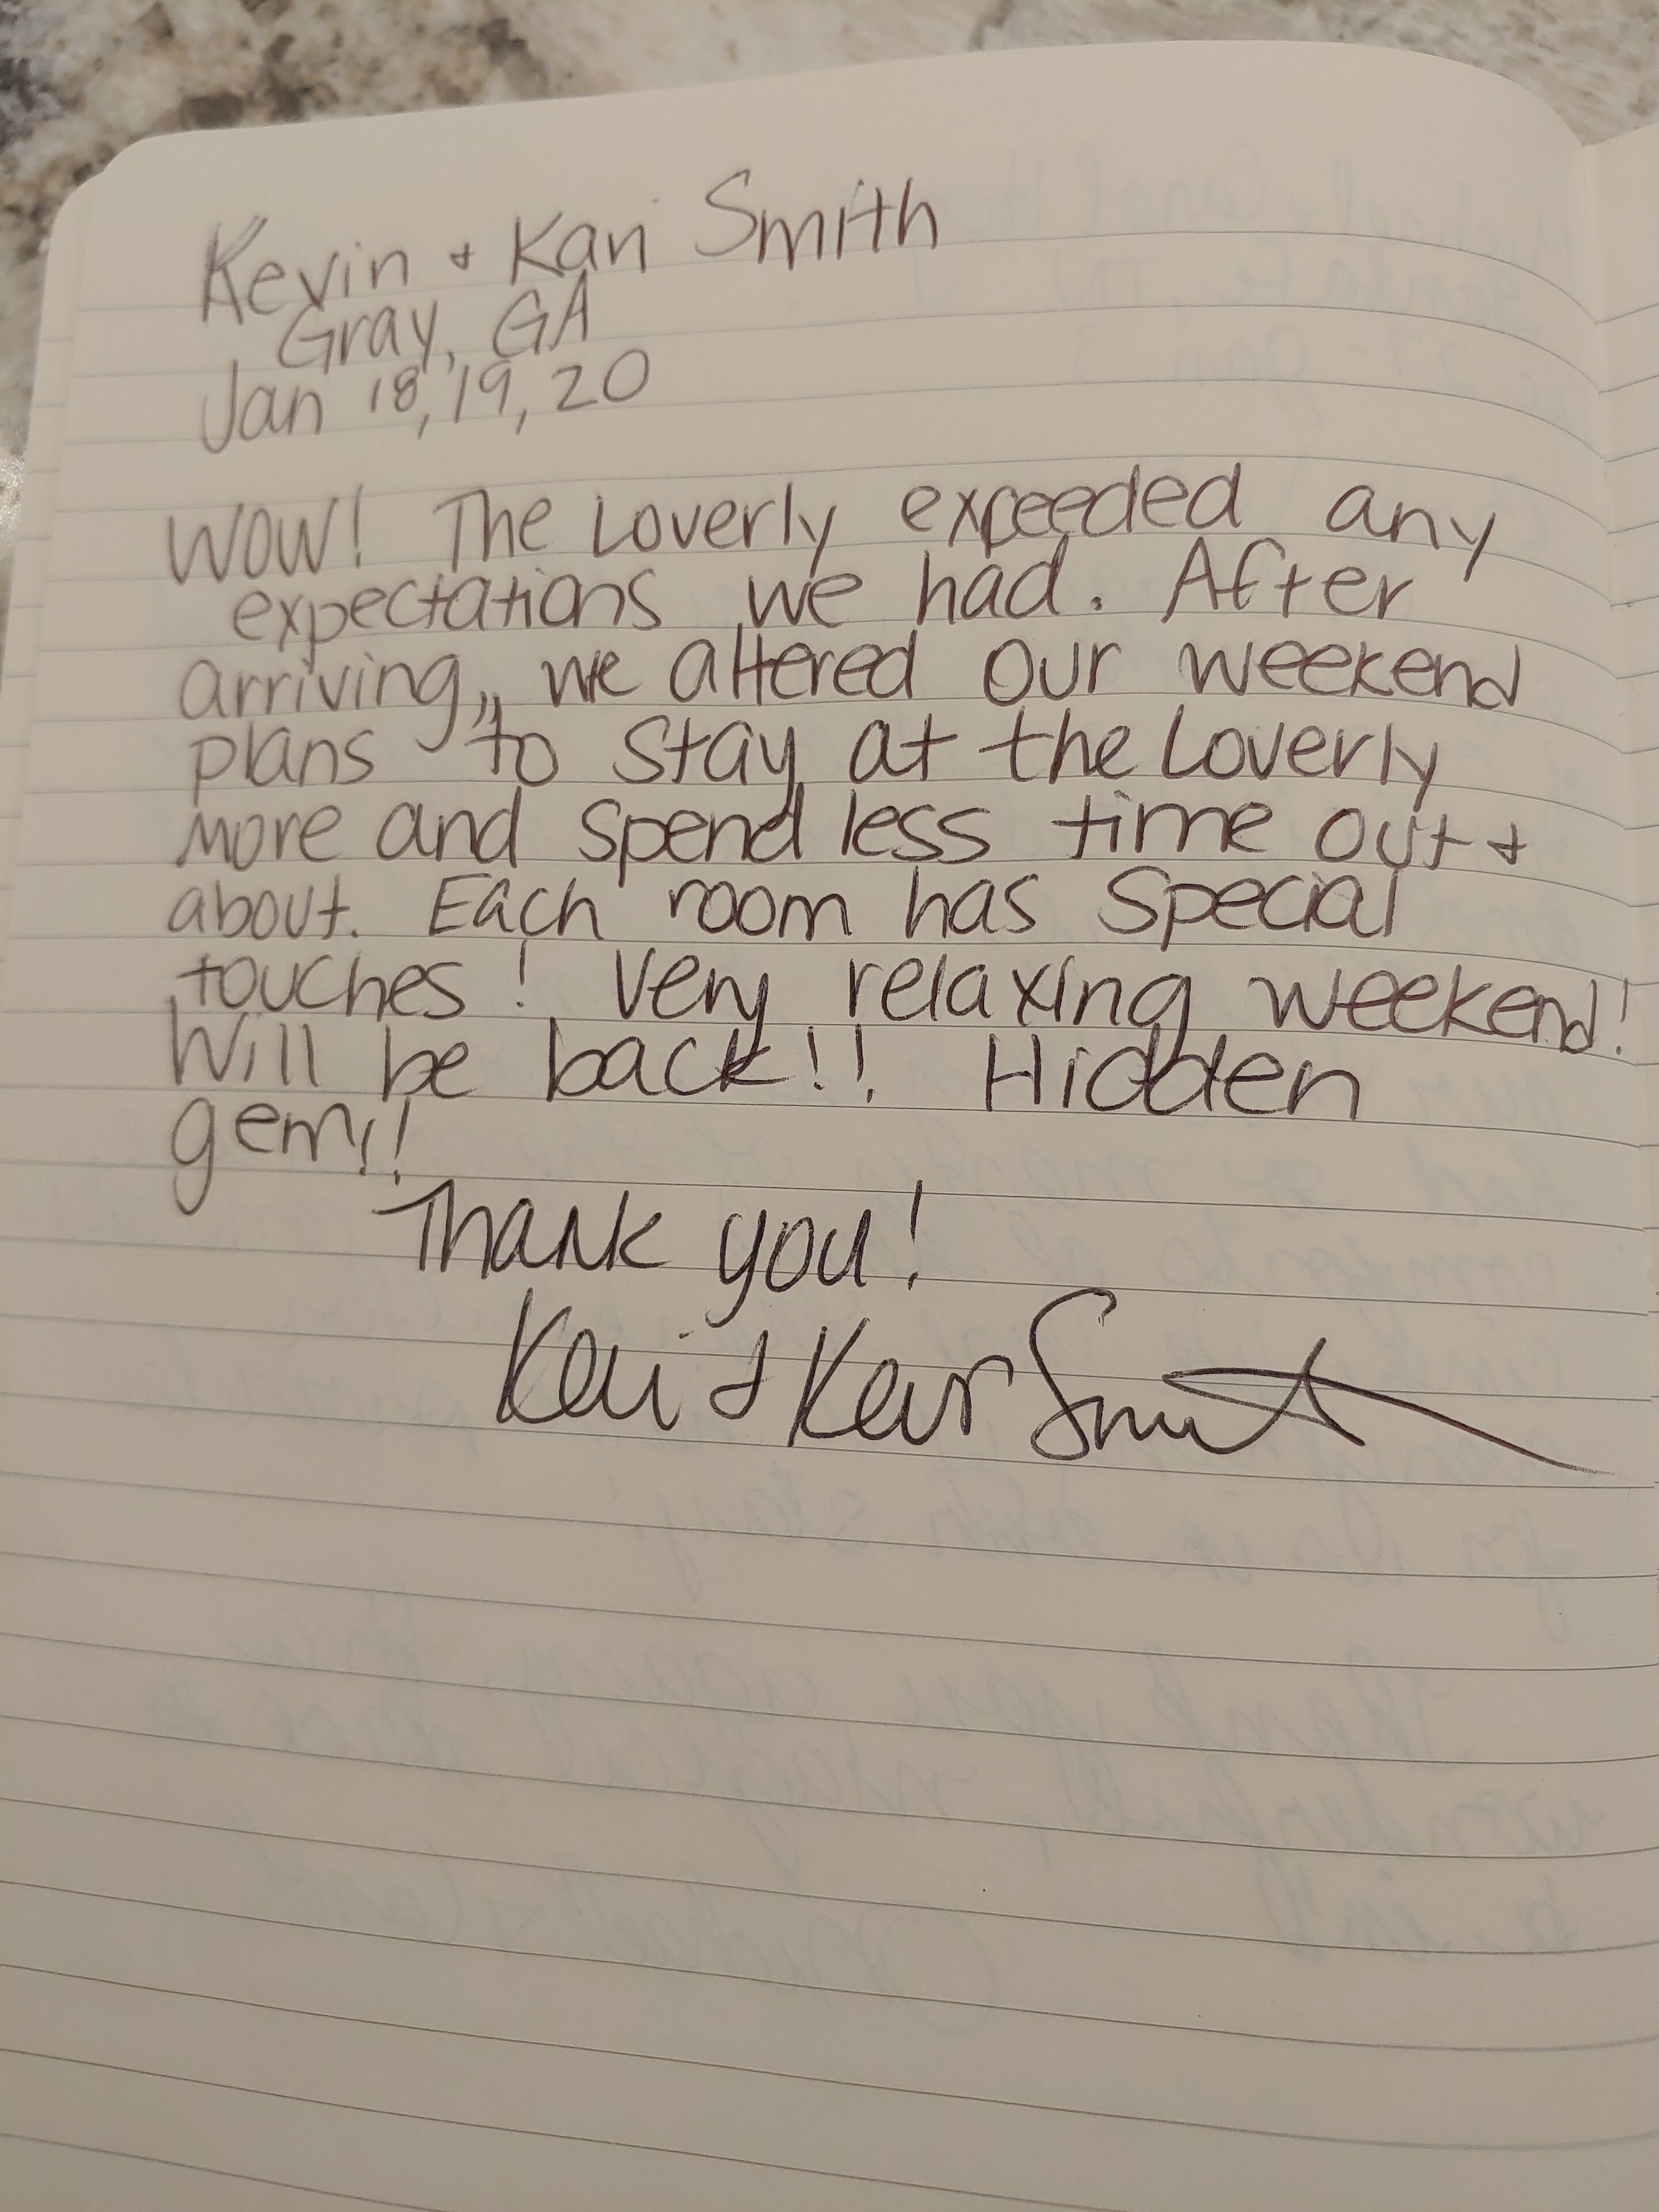 Kevin + Kari Smith
Gray, GA
Jan 18, 19, 20
WOW! The Loverly exceeded any
expectations we had. After
arriving, we altered our weekend
plans to stay at the Loverly
more and spend less time out +
about. Each room has special
touches! Very relaxing weekend!
Will be back!! Hidden
gem!!
Thank you!
Kari + Kevin Smith